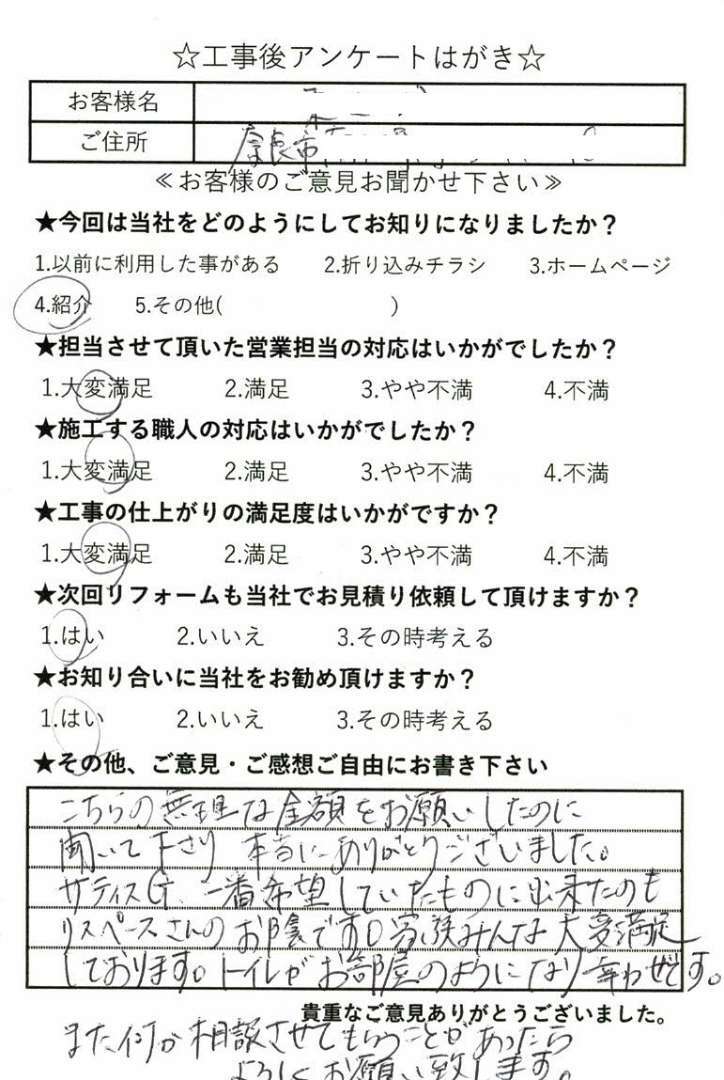 ☆工事後アンケートはがき☆
お客様名
ご住所 奈良市
≪お客様のご意見お聞かせ下さい≫
★今回は当社をどのようにしてお知りになりましたか？
1.以前に利用した事がある 2.折り込みチラシ 3.ホームページ
4.紹介 5.その他( )
★担当させて頂いた営業担当の対応はいかがでしたか？
1.大変満足 2.満足 3.やや不満 4.不満
★施工する職人の対応はいかがでしたか？
1.大変満足 2.満足 3.やや不満 4.不満
★工事の仕上がりの満足度はいかがですか？
1.大変満足 2.満足 3.やや不満 4.不満
★次回リフォームも当社でお見積り依頼して頂けますか？
1.はい 2.いいえ 3.その時考える
★お知り合いに当社をお勧め頂けますか？
1.はい 2.いいえ 3.その時考える
★その他、ご意見・ご感想ご自由にお書き下さい
こちらの無理な金額をお願いしたのに
聞いて下さり 本当にありがとうございました。
サティスG、一番希望していたものに出来たのも
リスペースさんのお陰です。家族みんな大変満足
しております。トイレがお部屋のようになり幸わせです。
貴重なご意見ありがとうございました。
また何か相談させてもらうことがあったら
よろしくお願い致します。